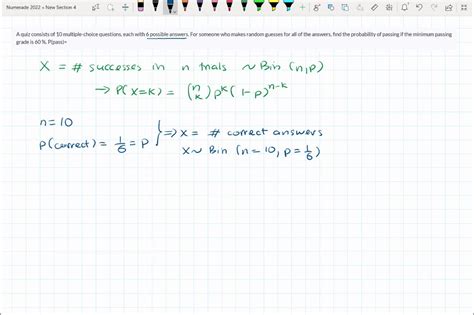 Numerade 2022 > New Section 4
A quiz consists of 10 multiple-choice questions, each with 6 possible answers. For someone who makes random guesses for all of the answers, find the probability of passing if the minimum passing
grade is 60 %. P(pass)=
X = # successes in n trials ~ Bin (n,p)
→ P(X=k) = (n k) p^k (1-p)^n-k
n = 10
p(correct) = 1/6 = p } ⇒ X = # correct answers
X ~ Bin (n = 10, p = 1/6)